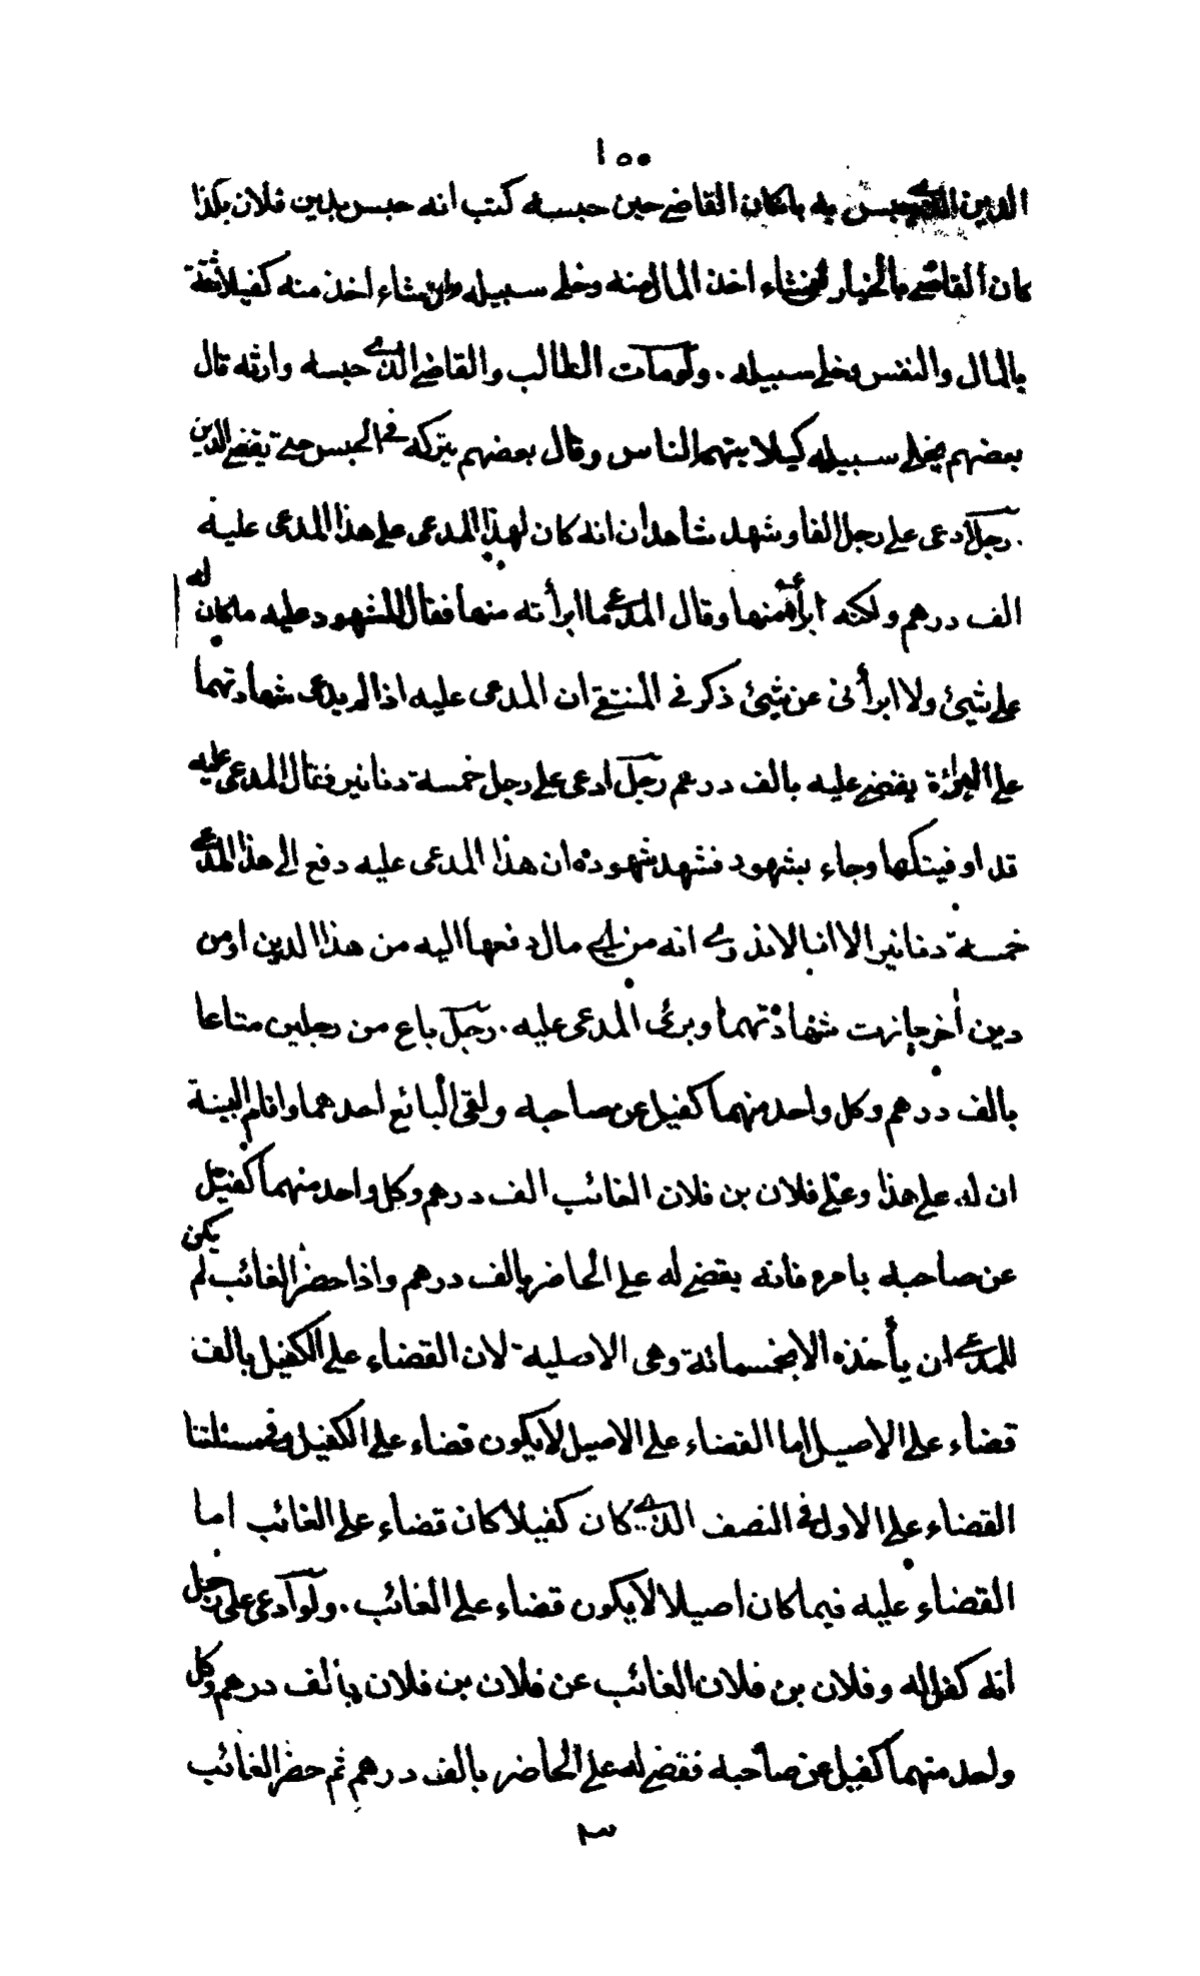 ١٥٥
الدين الذي حبس به بان كان القاضي حين حبسه كتب انه حبس بدين فلان بكذا
كان القاضي بالخيار ان شاء اخذ المال منه وخلى سبيله وان شاء اخذ منه كفيلا ثقة
بالمال والنفس وخلى سبيله . ولو مات الطالب والقاضي الذي حبسه وارثه قال
بعضهم يخلى سبيله كيلا يتهم الناس وقال بعضهم يتركه في الحبس حتى يقضي الدين
. رجل ادعى على رجل الفا وشهد شاهدان انه كان لهذا المدعى على هذا المدعى عليه
الف درهم ولكنه ابرأه عنه منها وقال المدعي ما ابرأته منها فقال المشهود عليه ما كان له
على شيئ ولا ابرأنى عن شيئ ذكر في المنتقى ان المدعى عليه اذا لم يدع شهادتهما
على البراءة يقضي عليه بالف درهم رجل ادعى على رجل خمسة دنانير فقال المدعى عليه
قد اوفيتكها وجاء بشهود فشهد شهوده ان هذا المدعى عليه دفع الى هذا المدعي
خمسة دنانير الا انا لا ندري انه من اي مال دفعها اليه من هذا الدين او من
دين أخر جازت شهادتهما وبرئ المدعى عليه . رجل باع من رجلين متاعا
بالف درهم وكل واحد منهما كفيل عن صاحبه ولقى البائع احدهما واقام البينة
ان له على هذا وعلى فلان بن فلان الغائب الف درهم وكل واحد منهما كفيل
عن صاحبه بامره فانه يقضي له على الحاضر بالف درهم واذا حضر الغائب لم يكن
للمدعي ان يأخذه الا بخمسمائة وهى الاصلية لان القضاء على الكفيل بالف
قضاء على الاصيل اما القضاء على الاصيل لا يكون قضاء على الكفيل وفي مسئلتنا
القضاء على الاول في النصف الذي كان كفيلا كان قضاء على الغائب اما
القضاء عليه فيما كان اصيلا لا يكون قضاء على الغائب . ولو ادعى على رجل
انه كفل له وفلان بن فلان الغائب عن فلان بن فلان بألف درهم وكل
واحد منهما كفيل عن صاحبه فقضي له على الحاضر بالف درهم ثم حضر الغائب